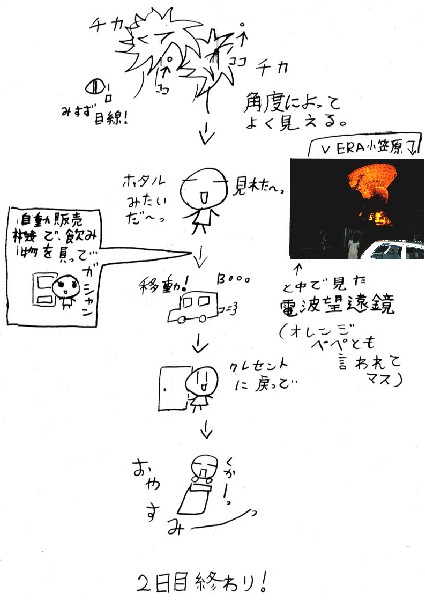 チカ
ココ
ココ
チカ
みすず目線!
角度によって
よく見える。
VERA小笠原
ホタル
みたい
だ〜っ
見れた〜っ
自動販売
機で、飲み
物を買って…
ガシャン
移動!
Booo
途中で見た
電波望遠鏡
(オレンジ
ペペとも
言われて
マス)
クレセント
に戻って…
くかーっ
おやすみーっ
2日目終わり!